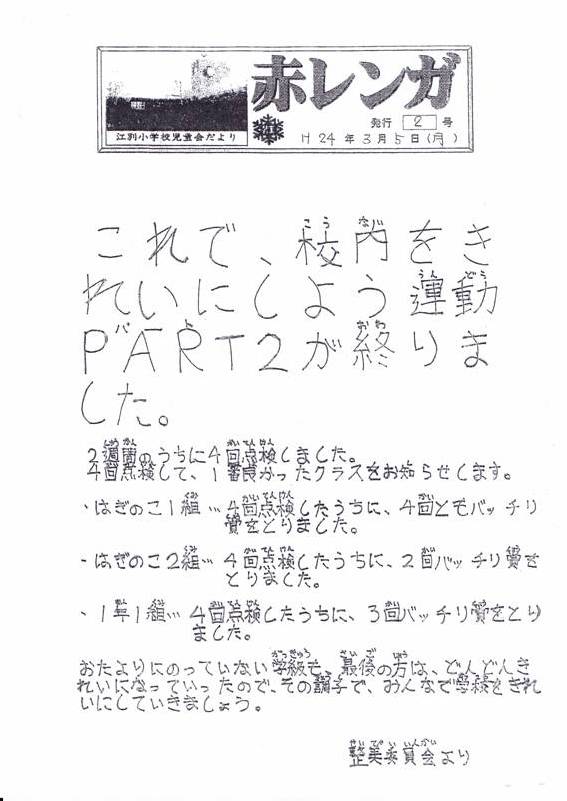 赤レンガ
江別小学校児童会だより
発行 2 号
H24年3月5日(月)
これで、校内をき
れいにしよう運動
PART2が終りま
した。
2週間のうちに4回点検しました。
4回点検して、1番良かったクラスをお知らせします。
・はぎのこ1組…4回点検したうちに、4回ともバッチリ
賞をとりました。
・はぎのこ2組…4回点検したうちに、2回バッチリ賞を
とりました。
・1年1組…4回点検したうちに、3回バッチリ賞をとり
ました。
おたよりにのっていない学級も、最後の方は、どんどんき
れいになっていったので、その調子で、みんなで学校をきれ
いにしていきましょう。
整美委員会より